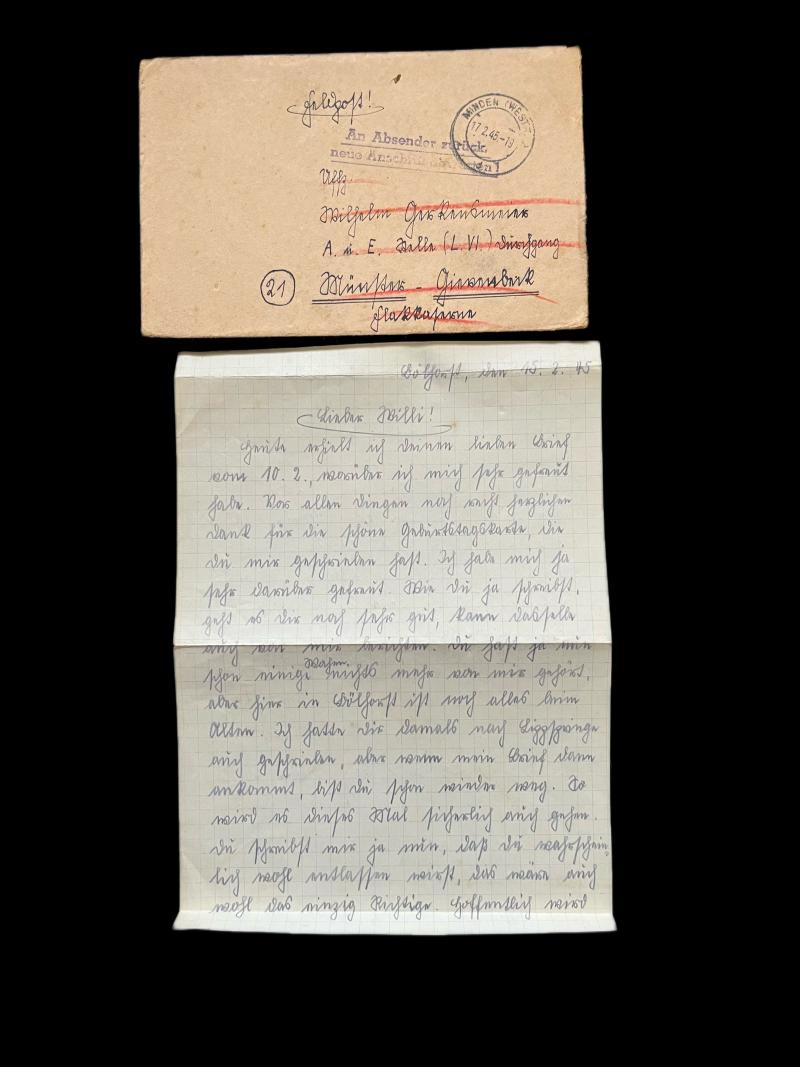 Feldpost!
MINDEN (WESTF)
17.2.45-19
An Absender zurück,
neue Anschrift
Uffz.
Wilhelm Gerkensmeier
A. u. E. Stelle (L. VI.) Durchgang
21 Münster - Gievenbeck
Flakkaserne
Bölhorst, den 15. 2. 45
Lieber Willi!
Heute erhielt ich deinen lieben Brief
vom 10. 2., worüber ich mich sehr gefreut
habe. Vor allen Dingen noch recht herzlichen
Dank für die schöne Geburtstagskarte, die
du mir geschrieben hast. Ich habe mich ja
sehr darüber gefreut. Wie du ja schreibst,
geht es dir noch sehr gut, kann dasselbe
auch von mir berichten. Du hast ja nun
schon einige nichts mehr von mir gehört,
aber hier in Bölhorst ist noch alles beim
Alten. Ich hatte dir damals nach Lippspringe
auch geschrieben, aber wenn mein Brief dann
ankommt, bist du schon wieder weg. So
wird es dieses Mal sicherlich auch gehen.
Du schreibst mir ja nun, daß du wahrschein-
lich wohl entlassen wirst, das wäre auch
wohl das einzig Richtige. Hoffentlich wird